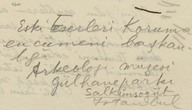 Eski Eserleri Koruma
encümeni başkan
lığı
Arkeoloji müzesi
Gülhaneparkı
Salkımsöğüt
İstanbul